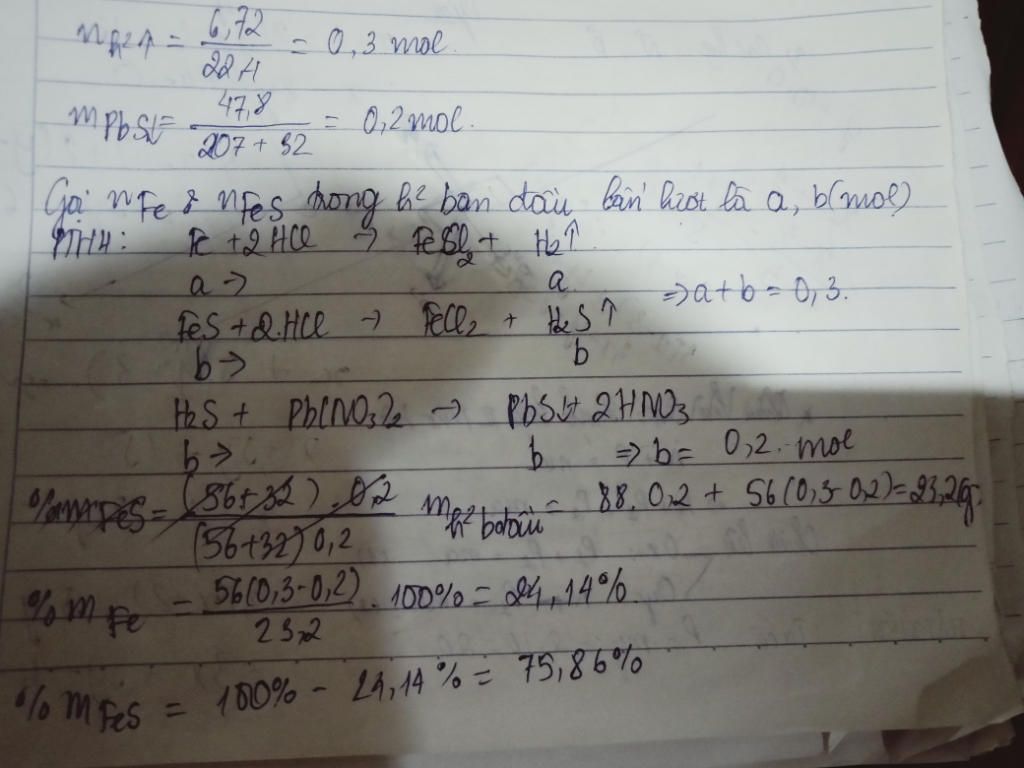 n h² ↑ = 6,72 / 22,4 = 0,3 mol.
m PbS↓ = 47,8 / 207 + 32 = 0,2 mol.
Gọi nFe & nFeS trong h² ban đầu lần lượt là a, b (mol)
PTHH: Fe + 2HCl → FeCl2 + H2↑
a → a ⇒ a + b = 0,3.
FeS + 2HCl → FeCl2 + H2S↑
b → b
H2S + Pb(NO3)2 → PbS↓ + 2HNO3
b → b ⇒ b = 0,2 mol
%mFeS = (56+32).0,2 / (56+32)0,2 m h² bđầu = 88.0,2 + 56(0,3-0,2) = 23,2g.
%mFe = 56(0,3-0,2) / 23,2 . 100% = 24,14%
%mFeS = 100% - 24,14% = 75,86%